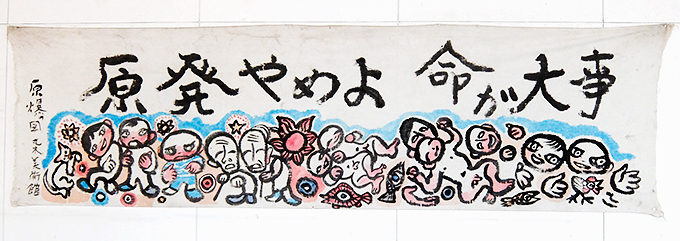 原発やめよ 命が大事
原爆図 丸木美術館